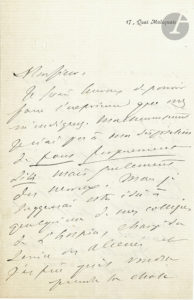 17, Quai Malaquais
Monsieur,
Je serais heureux de pouvoir
faire l'expérience que vous
m'indiquez. Malheureusement
je n'ai pas à ma disposition
de fous proprement
dits mais seulement
des nerveux. Mais je
suggérerai cette idée à
quelqu'un de mes collègues
de l'hospice, chargé du
service des aliénés et